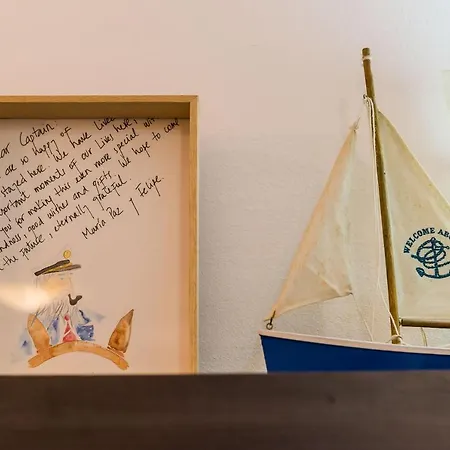 ear Captain,
are so happy of
stayed here. We have lived
portant moments of our lives here,
you for making this even more special with
ndness, good wishes and gifts. We hope to come
the future, eternally grateful.
María Paz y Felipe.
WELCOME ABO